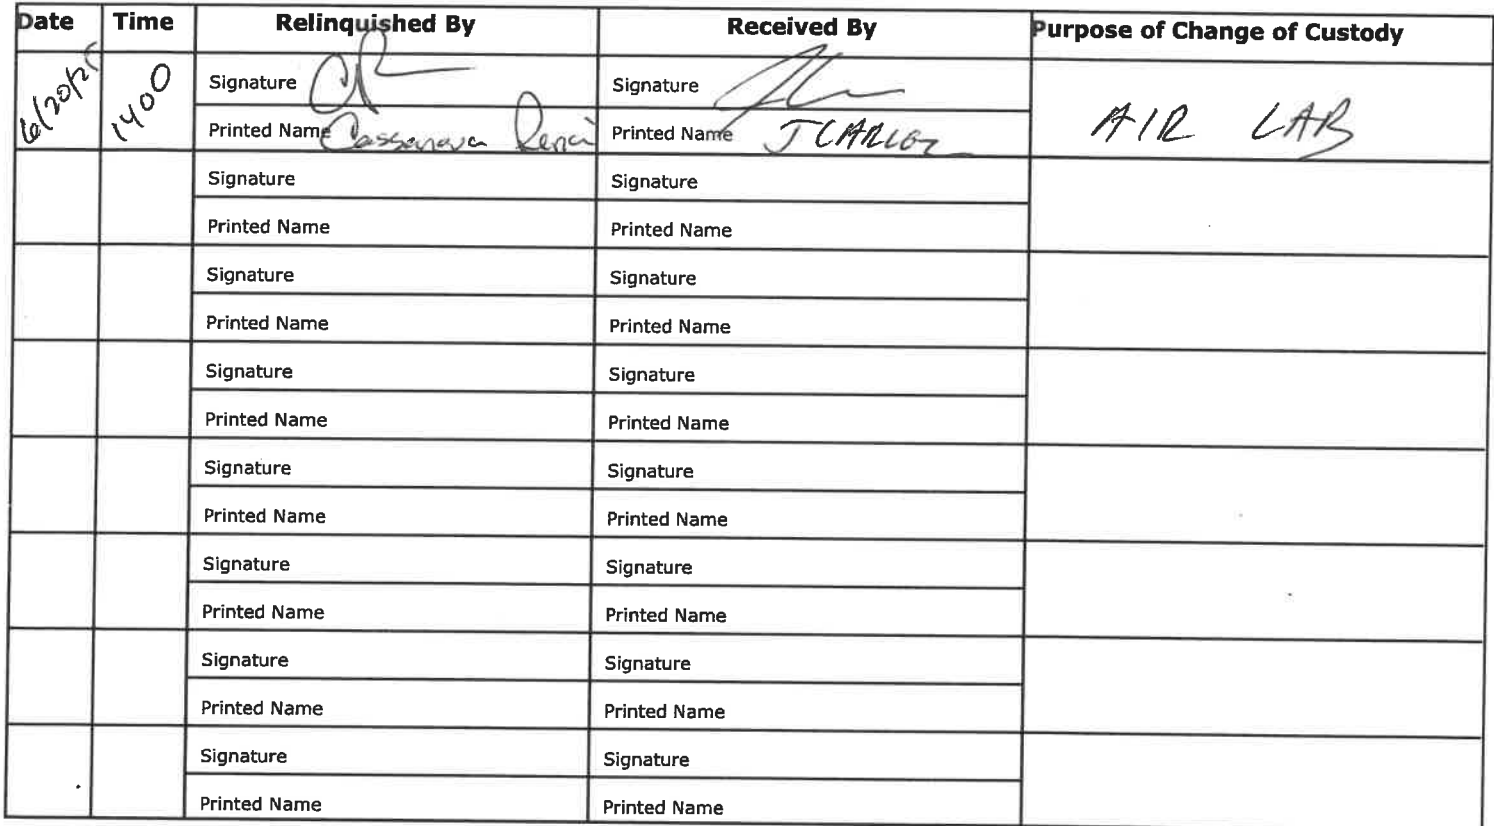 Date Time Relinquished By Received By Purpose of Change of Custody
6/20/25 1400 Signature Signature AIR LAB
Printed Name Cassanova Printed Name
Signature Signature
Printed Name Printed Name
Signature Signature
Printed Name Printed Name
Signature Signature
Printed Name Printed Name
Signature Signature
Printed Name Printed Name
Signature Signature
Printed Name Printed Name
Signature Signature
Printed Name Printed Name
Signature Signature
Printed Name Printed Name